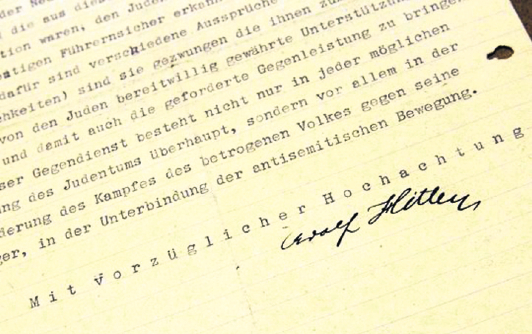 der
die aus dies
tion waren, den Juden
atigen Führernsicher erkenn
dafür sind verschiedene Aussprüche
chkeiten) sind sie gezwungen die ihnen zu
von den Juden bereitwillig gewährte Unterstützun
und damit auch die geforderte Gegenleistung zu bringen
ser Gegendienst besteht nicht nur in jeder möglichen
ng des Judentums überhaupt, sondern vor allem in der
derung des Kampfes des betrogenen Volkes gegen seine
ger, in der Unterbindung der antisemitischen Bewegung.
Mit vorzüglicher Hochachtung
Adolf Hitler